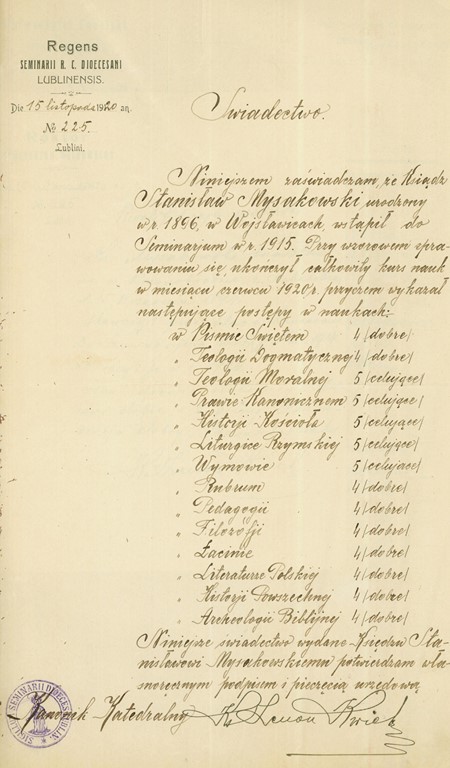 Regens
SEMINARII R. C. DIOECESANI
LUBLINENSIS.
Die 15 listopada 1920 an.
№ 225.
Lublini.
Świadectwo.
Niniejszem zaświadczam, że Ksiądz
Stanisław Mysakowski, urodzony
w r. 1896, w Wojsławicach, wstąpił do
Seminarjum w r. 1915. Przy wzorowem spra-
wowaniu się, ukończył całkowity kurs nauk
w miesiącu czerwcu 1920 r. przyczem wykazał
następujące postępy w naukach:-
w Piśmie Świętem 4 /dobre/
„ Teologii Dogmatycznej 4 /dobre/
„ Teologii Moralnej 5 /celujące/
„ Prawie Kanonicznem 5 /celujące/
„ Historji Kościoła 5 /celujące/
„ Liturgice Rzymskiej 5 /celujące/
„ Wymowie 5 /celujące/
„ Rubrum 4 /dobre/
„ Pedagogii 4 /dobre/
„ Filozofji 4 /dobre/
„ Łacinie 4 /dobre/
„ Literaturze Polskiej 4 /dobre/
„ Historji Powszechnej 4 /dobre/
„ Archeologii Biblijnej 4 /dobre/
Niniejsze świadectwo wydane Księdzu Sta-
nisławowi Mysakowskiemu potwierdzam wła-
snoręcznym podpisem i pieczęcią urzędową
Kanonik Katedralny Ks. Zenon Kwiek